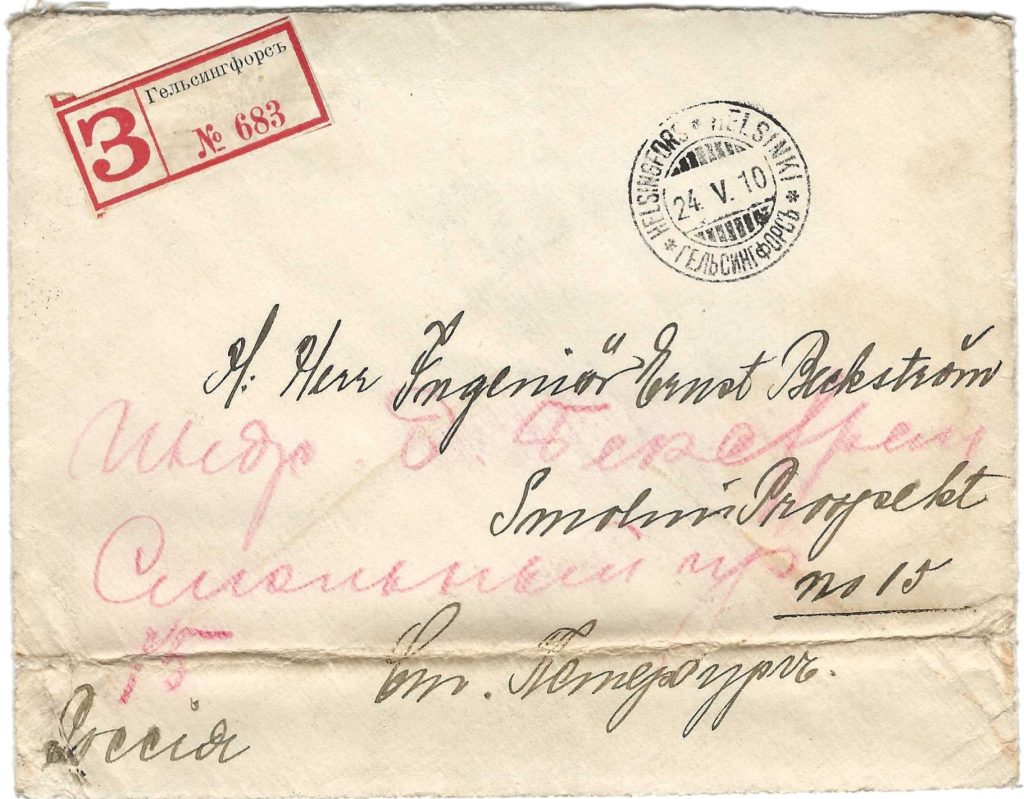 Гельсингфорсъ
З
№ 683
HELSINGFORS * HELSINKI * ГЕЛЬСИНГФОРСЪ *
24. V. 10
H: Herr Ingeniör Ernst Beckström
Инжр. Э. Бекстрем
Smolnii Prospekt
Смольный пр
no 15
15
Ст. Петербургъ.
Россія